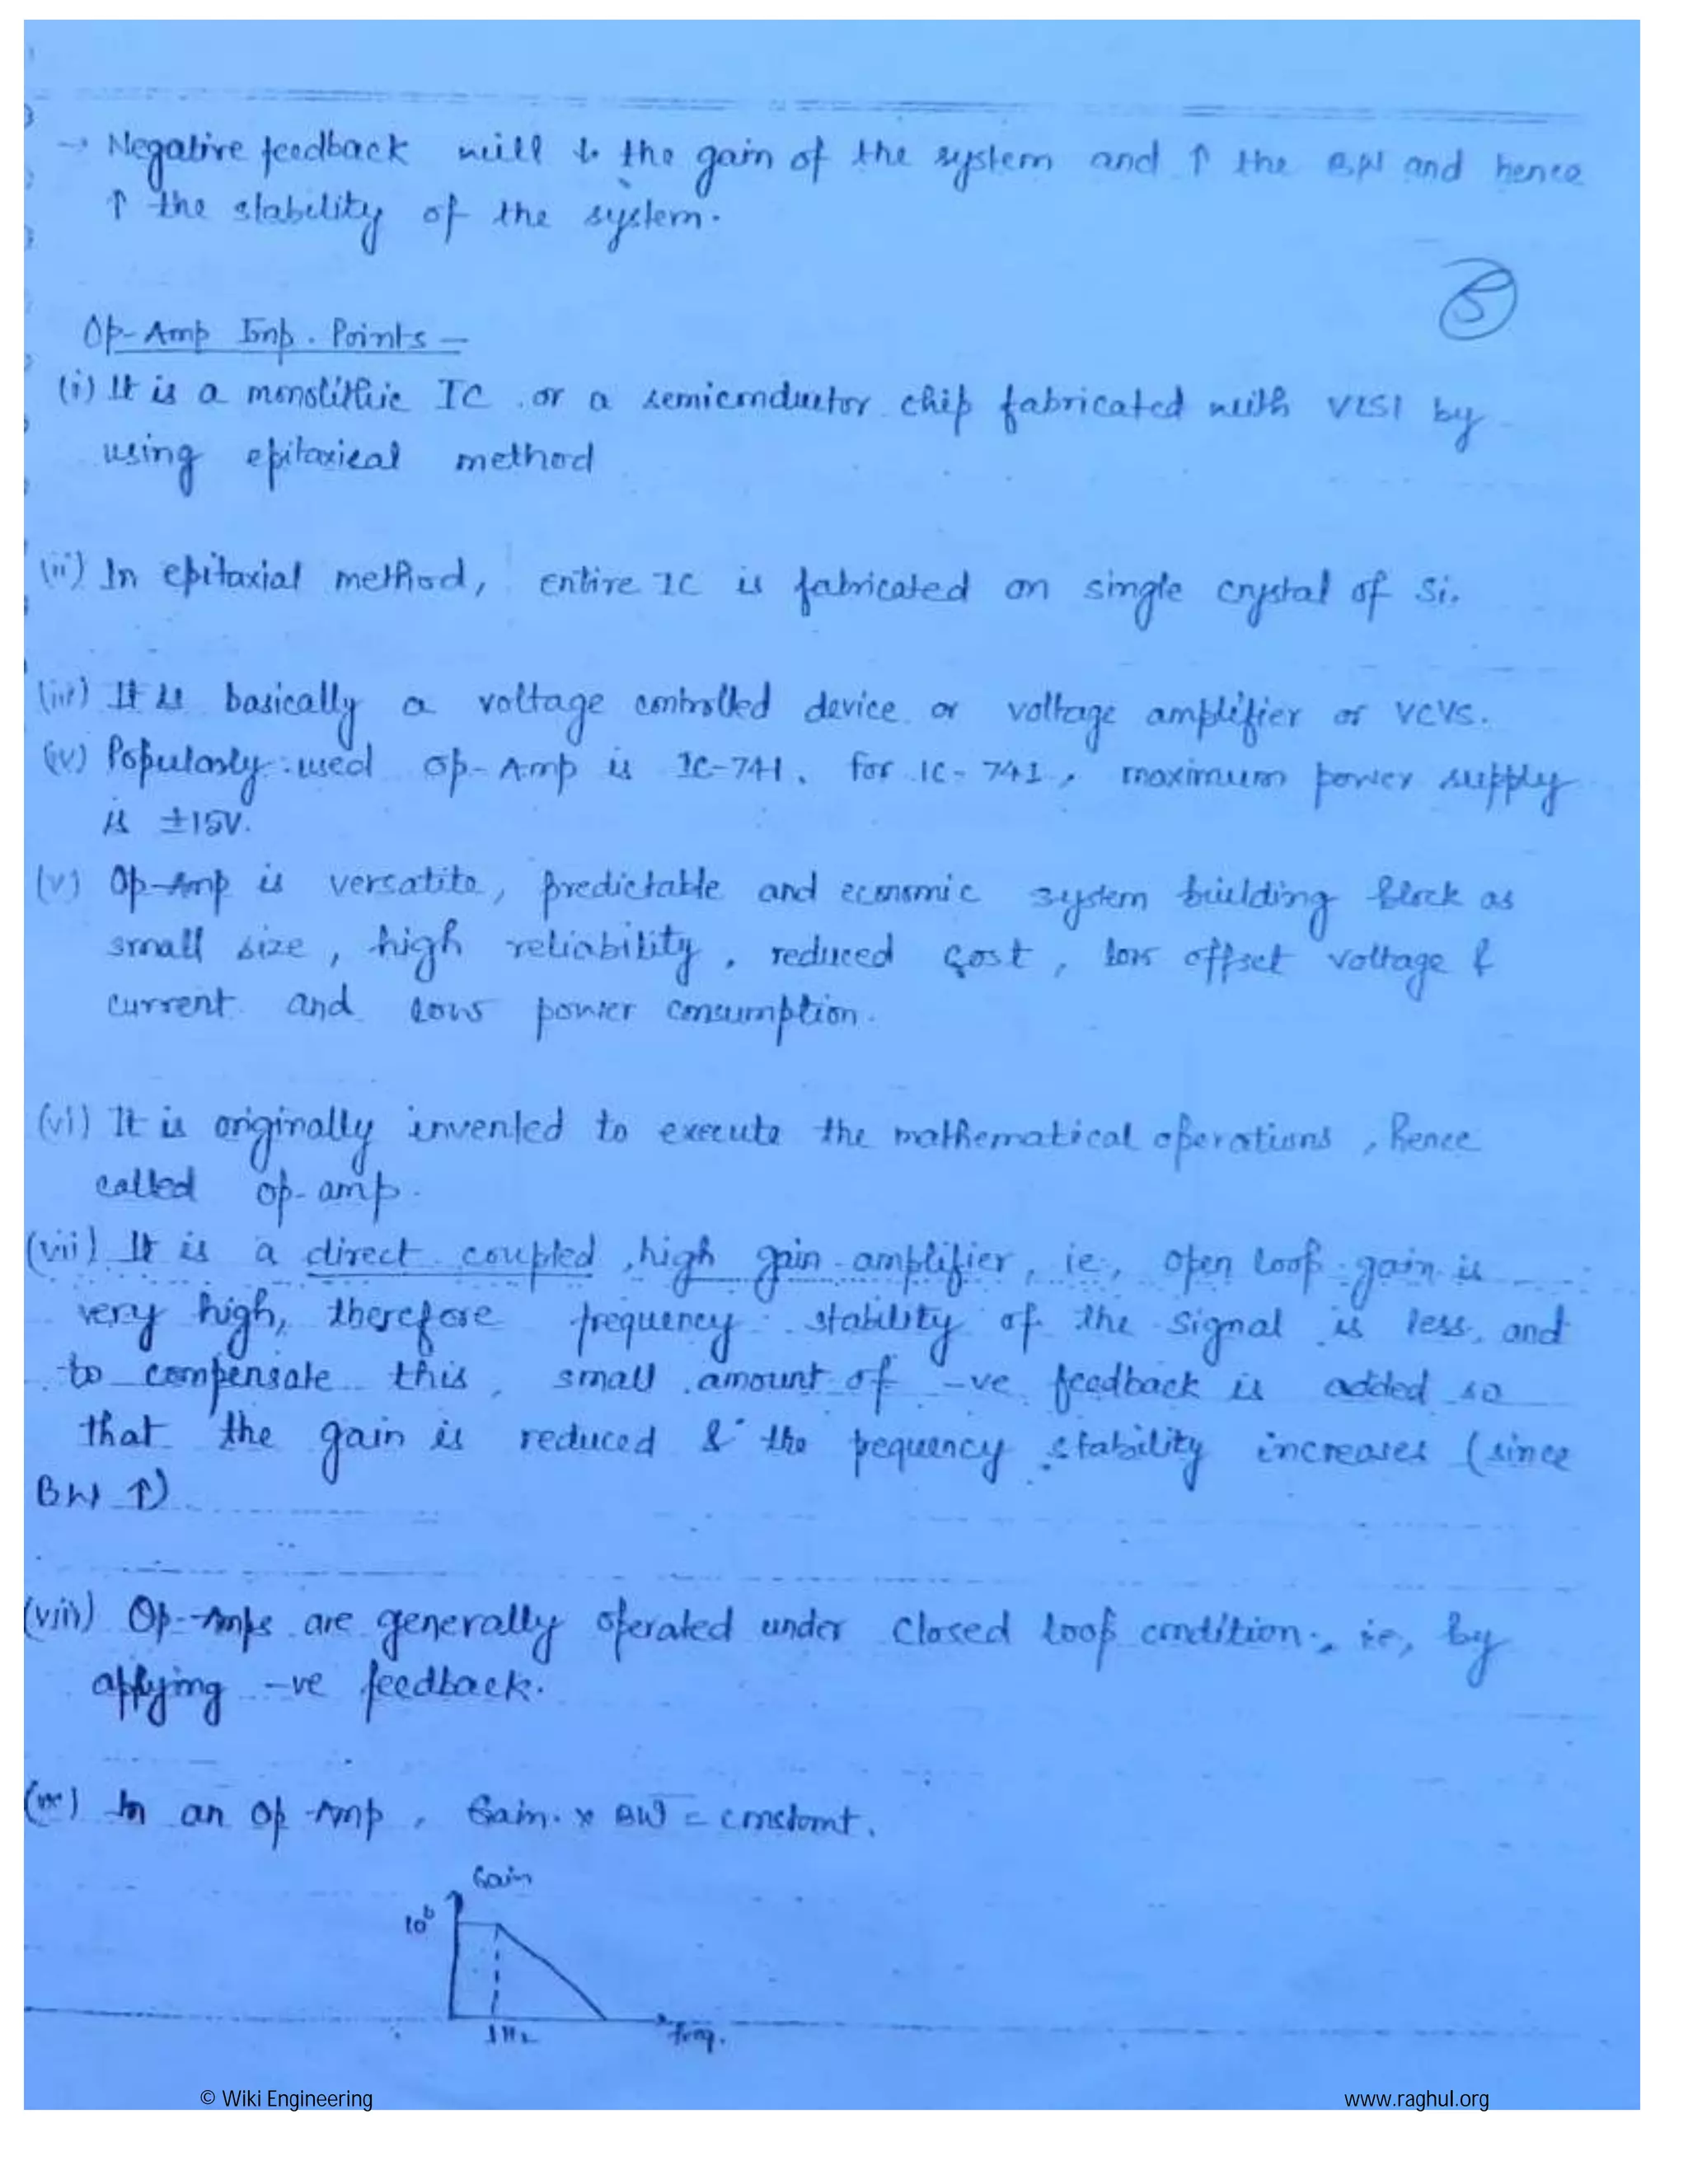 → Negative feedback will ↓ the gain of the system and ↑ the B.W and hence
↑ the stability of the system.
5
Op-Amp Imp. Points —
(i) It is a monolithic IC or a semiconductor chip fabricated with VLSI by
using epitaxical method
(ii) In epitaxial method, entire IC is fabricated on single crystal of Si.
(iii) It is basically a voltage controlled device or voltage amplifier or VCVS.
(iv) Popularly used Op-Amp is IC-741. for IC-741, maximum power supply
is ±15V.
(v) Op-Amp is versatile, predictable and economic system building block as
small size, high reliability, reduced cost, low offset voltage &
current and low power consumption.
(vi) It is originally invented to execute the mathematical operations, hence
called op-amp.
(vii) It is a direct coupled, high gain amplifier, ie, open loop gain is
very high, therefore frequency stability of the signal is less, and
to compensate this, small amount of -ve feedback is added so
that the gain is reduced & the frequency stability increases (since
BW ↑)
(viii) Op-Amps are generally operated under closed loop condition, ie, by
applying -ve feedback.
(ix) In an Op-Amp, Gain × BW = constant.
Gain
10⁶
1Hz freq.
© Wiki Engineering www.raghul.org